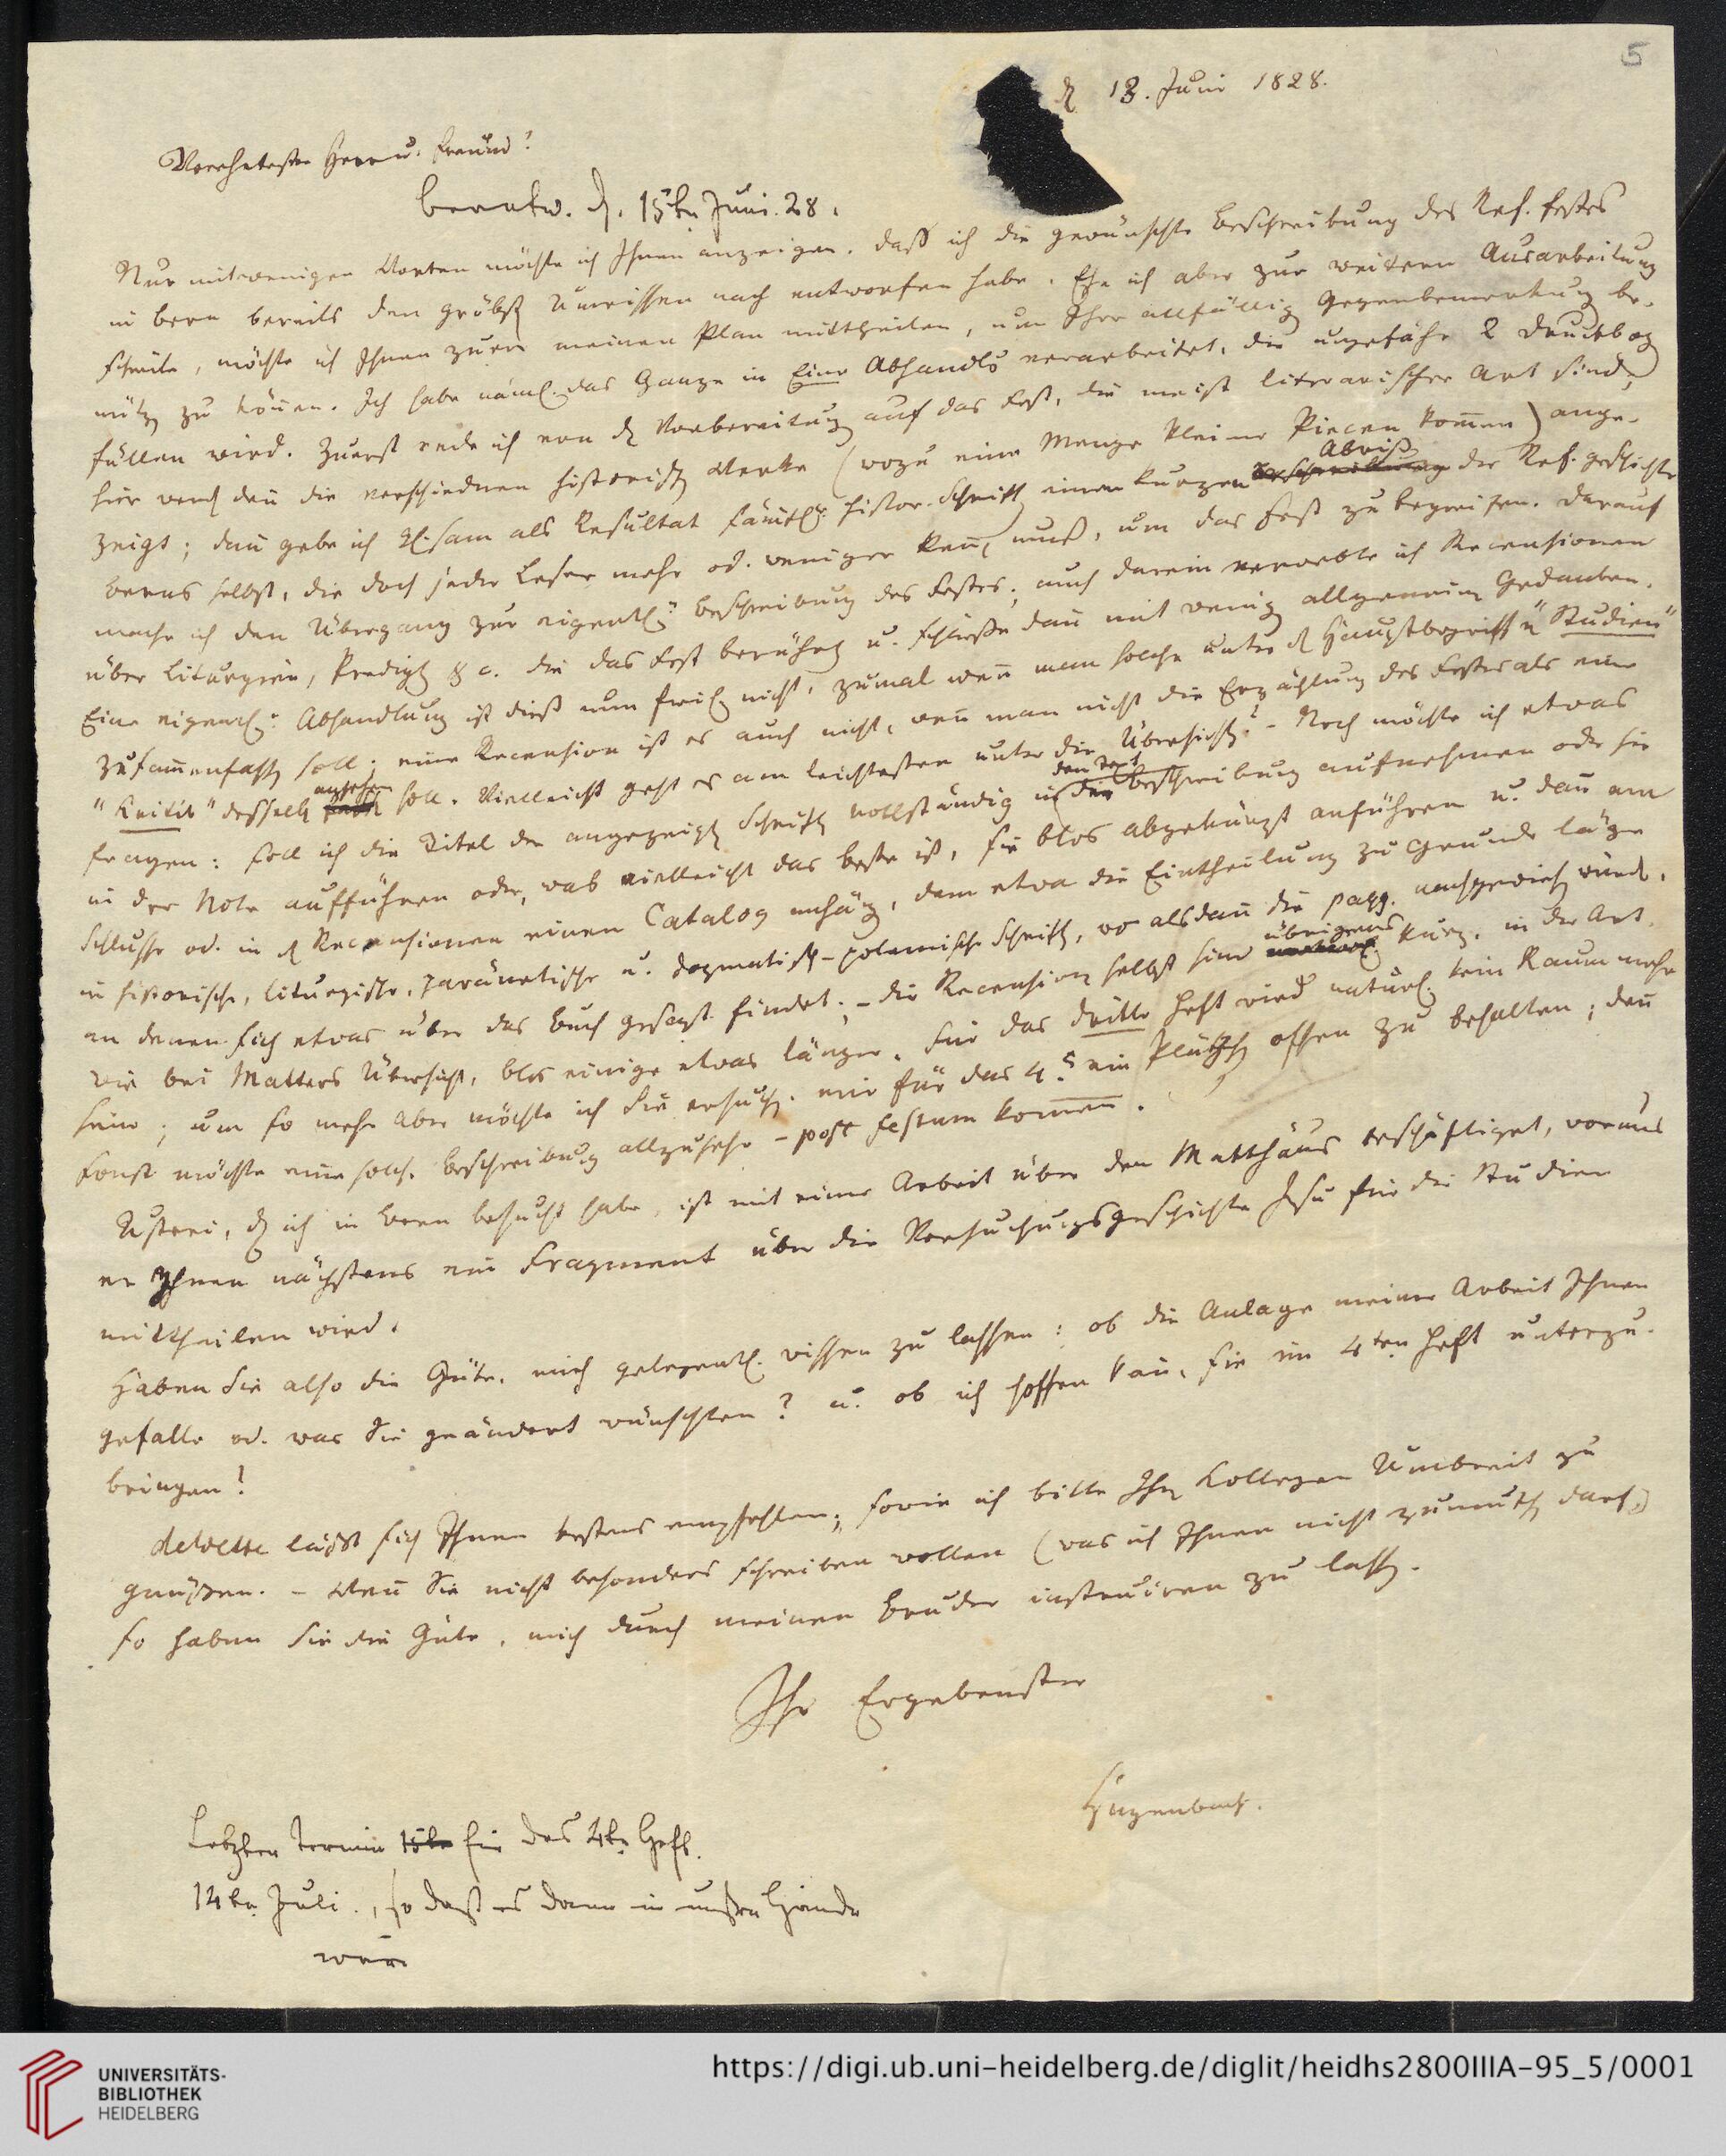 5
d 13. Juni 1828.
Verehrtester Herr u. Freund!
beantw. d. 15ten Juni. 28.
Nur mit wenigen Worten möchte ich Ihnen anzeigen, daß ich die gewünschte Beschreibung des Ref. festes
in Bern bereits den gröbst Umrissen nach entworfen habe. Ehe ich aber zur weitern Ausarbeitung
schreite, möchte ich Ihnen zuvor meinen Plan mittheilen, um Ihre allfällig Gegenbemerkung be-
nütz zu könen. Ich habe näml. das Ganze in Eine Abhandlg verarbeitet, die ungefähr 2 Druckbog
füllen wird. Zuerst rede ich von d Vorbereitung auf das Fest, die meist literarischer Art sind,
hier werd den die verschiednen historisch Werke (wozu eine Menge kleine Piecen komen) ange-
zeigt; dan gebe ich gl.sam als Resultat sämtl. histor. Schrift einen kurzen Beschreibung Abriß der Ref. geschichte
Berns selbst, die doch jeder Leser mehr od. weniger ken muß, um das Fest zu begreifen. Darauf
mache ich den Übergang zur eigentl. Beschreibung des Festes; auch darein verwebte ich Recensionen
über Liturgien, Predigt &c. die das Fest berührt u. schließe dan mit wenig allgemein Gedanken.
Eine eigentl. Abhandlung ist dieß nun freil nicht, zumal wen man solche unter d Hauptbegriff "Studien"
zusamenfass soll; eine Recension ist es auch nicht, wen man nicht die Erzählung des Festes als eine
"Kritik" desselb ansehen soll. Vielleicht geht es am leichtesten unter die Übersicht? - Noch möchte ich etwas
fragen: soll ich die Titel der angezeigt Schrift vollständig in den Text der Beschreibung aufnehmen oder sie
in der Note aufführen oder, was vielleicht das beste ist, sie blos abgekürzt anführen u. dan am
Schlusse od. in d Recensionen einen Catalog anhäng, dem etwa die Eintheilung zu Grunde läge
in historische, liturgische, paränetische u. dogmatisch-polemische Schrift, wo alsdan die pagg. nachgewies würd,
an denen sich etwas über das Buch gesagt findet; - die Recension selbst sind übrigens kurz, in der Art
wie bei Matters Übersicht, blos einige etwas länger. Für das dritte Heft wird natürl. kein Raum mehr
sein; um so mehr aber möchte ich Sie ersuch, mir für das 4.t ein Plätzch offen zu behalten; den
sonst möchte eine solch. Beschreibung allzusehr - post festum komen.
Usteri, d ich in Bern besucht habe, ist mit einer Arbeit über den Matthäus beschäftiget, woraus
er Ihnen nächstens ein Fragment über die Versuchungsgeschichte Jesu für die Studien
mittheilen wird.
Haben Sie also die Güte, mich gelegentl. wissen zu lassen: ob die Anlage meiner Arbeit Ihnen
gefalle od. was Sie geändert wünschten? u. ob ich hoffen kan, sie im 4ten Heft unterzu-
bringen?
deWette läßt sich Ihnen bestens empfehlen; sowie ich bitte Ihr Kollegen Umbreit zu
grüßen. - Wen Sie nicht besonders schreiben wollen (was ich Ihnen nicht zumuth darf,)
so haben Sie die Güte, mich durch meinen Bruder instruiren zu lass.
Ihr Ergebenster
Hagenbach.
Letzter Termin 15te für das 4te Heft.
14te Juli., so daß es dann in unsern Händen
wäre
UNIVERSITÄTS-
BIBLIOTHEK
HEIDELBERG
https://digi.ub.uni-heidelberg.de/diglit/heidhs2800IIIA-95_5/0001